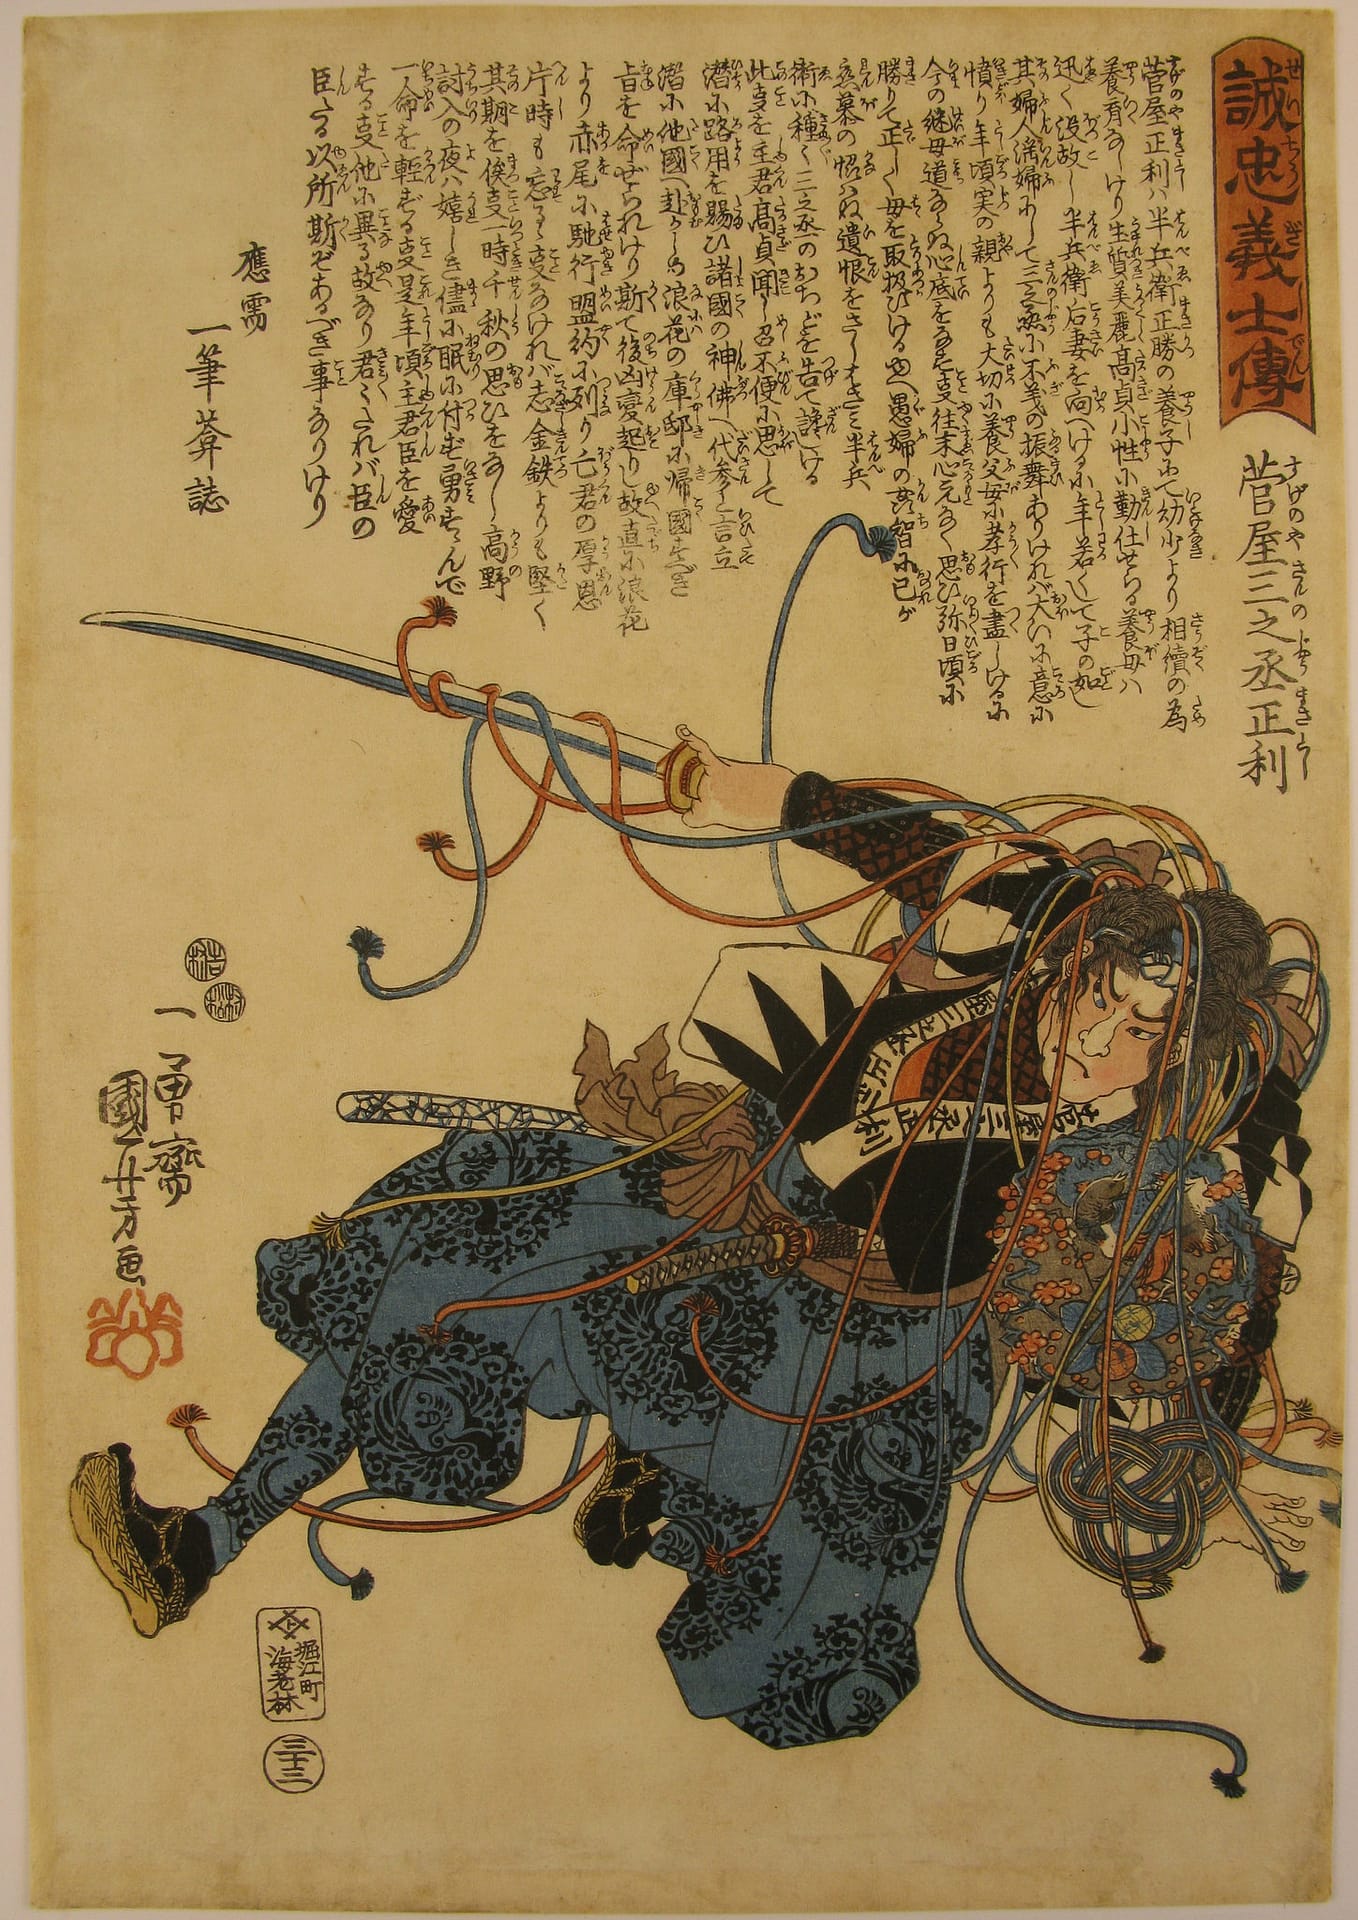 誠忠義士傳
せいちうぎしでん
菅屋三之丞正利
すげのやさんのじょうまさとし
菅屋正利ハ半兵衛正勝の養子にて幼少より相續の為
養育なしけり生質美麗髙貞小性に勤仕せらる養母ハ
迅く没故し半兵衛后妻を向へけるに年若くして子の如し
其婦人淫婦にして三之丞に不義の振舞ありければ大いに意に
憤り年頃実の親よりも大切に養父母に孝行を盡しけるに
今の継母道ならぬ心底をなす事往末心元なく思ひ弥日頃に
勝りて正しく母を取扱ひけるゆへ愚婦の無智に己が
恋慕の怊ハぬ遺恨をさしはさミ半兵
衛に種〻三之丞のおちどを告て讒しける
此事を主君髙貞聞し召不便に思して
潜に路用を賜ひ諸國の神佛へ代参と言立
潜に他國へ赴かしめ浪花の庫邸に帰國すべき
旨を命ぜられけり斯て後凶変起りし故直に浪花
より赤尾に馳行盟約に列り亡君の厚恩
片時も忘るゝ事なければ志金鉄よりも堅く
其期を俟事一時千秋の思ひをなし髙野
討入の夜ハ嬉しき儘に眠に付ず勇すゝんで
一命を軽ずる事是年頃主君臣を愛
する事他に異る故なり君君たれバ臣の
臣たる以所斯ぞあるべき事なりけり
應需
一筆葊誌
菅屋三之丞正利
一勇齋
國芳画
堀江町
海老林
三十三